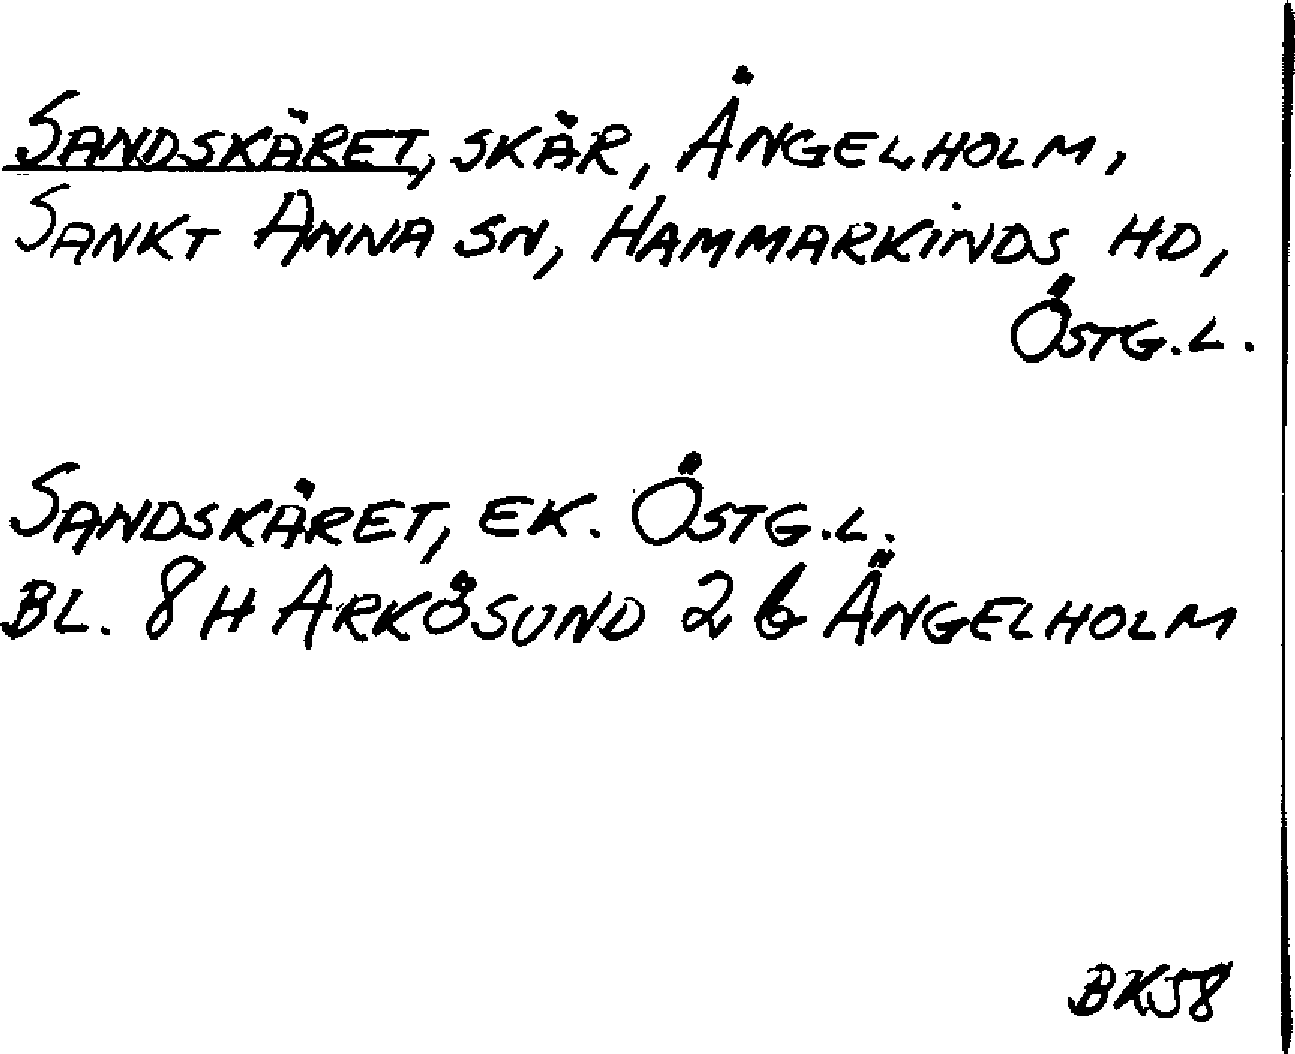 SANDSKÄRET, SKÄR, ÄNGELHOLM,
SANKT ANNA SN, HAMMARKINDS HD,
ÖSTG.L.
SANDSKÄRET, EK. ÖSTG.L.
BL. 8H ARKÖSUND 2b ÄNGELHOLM
BK58